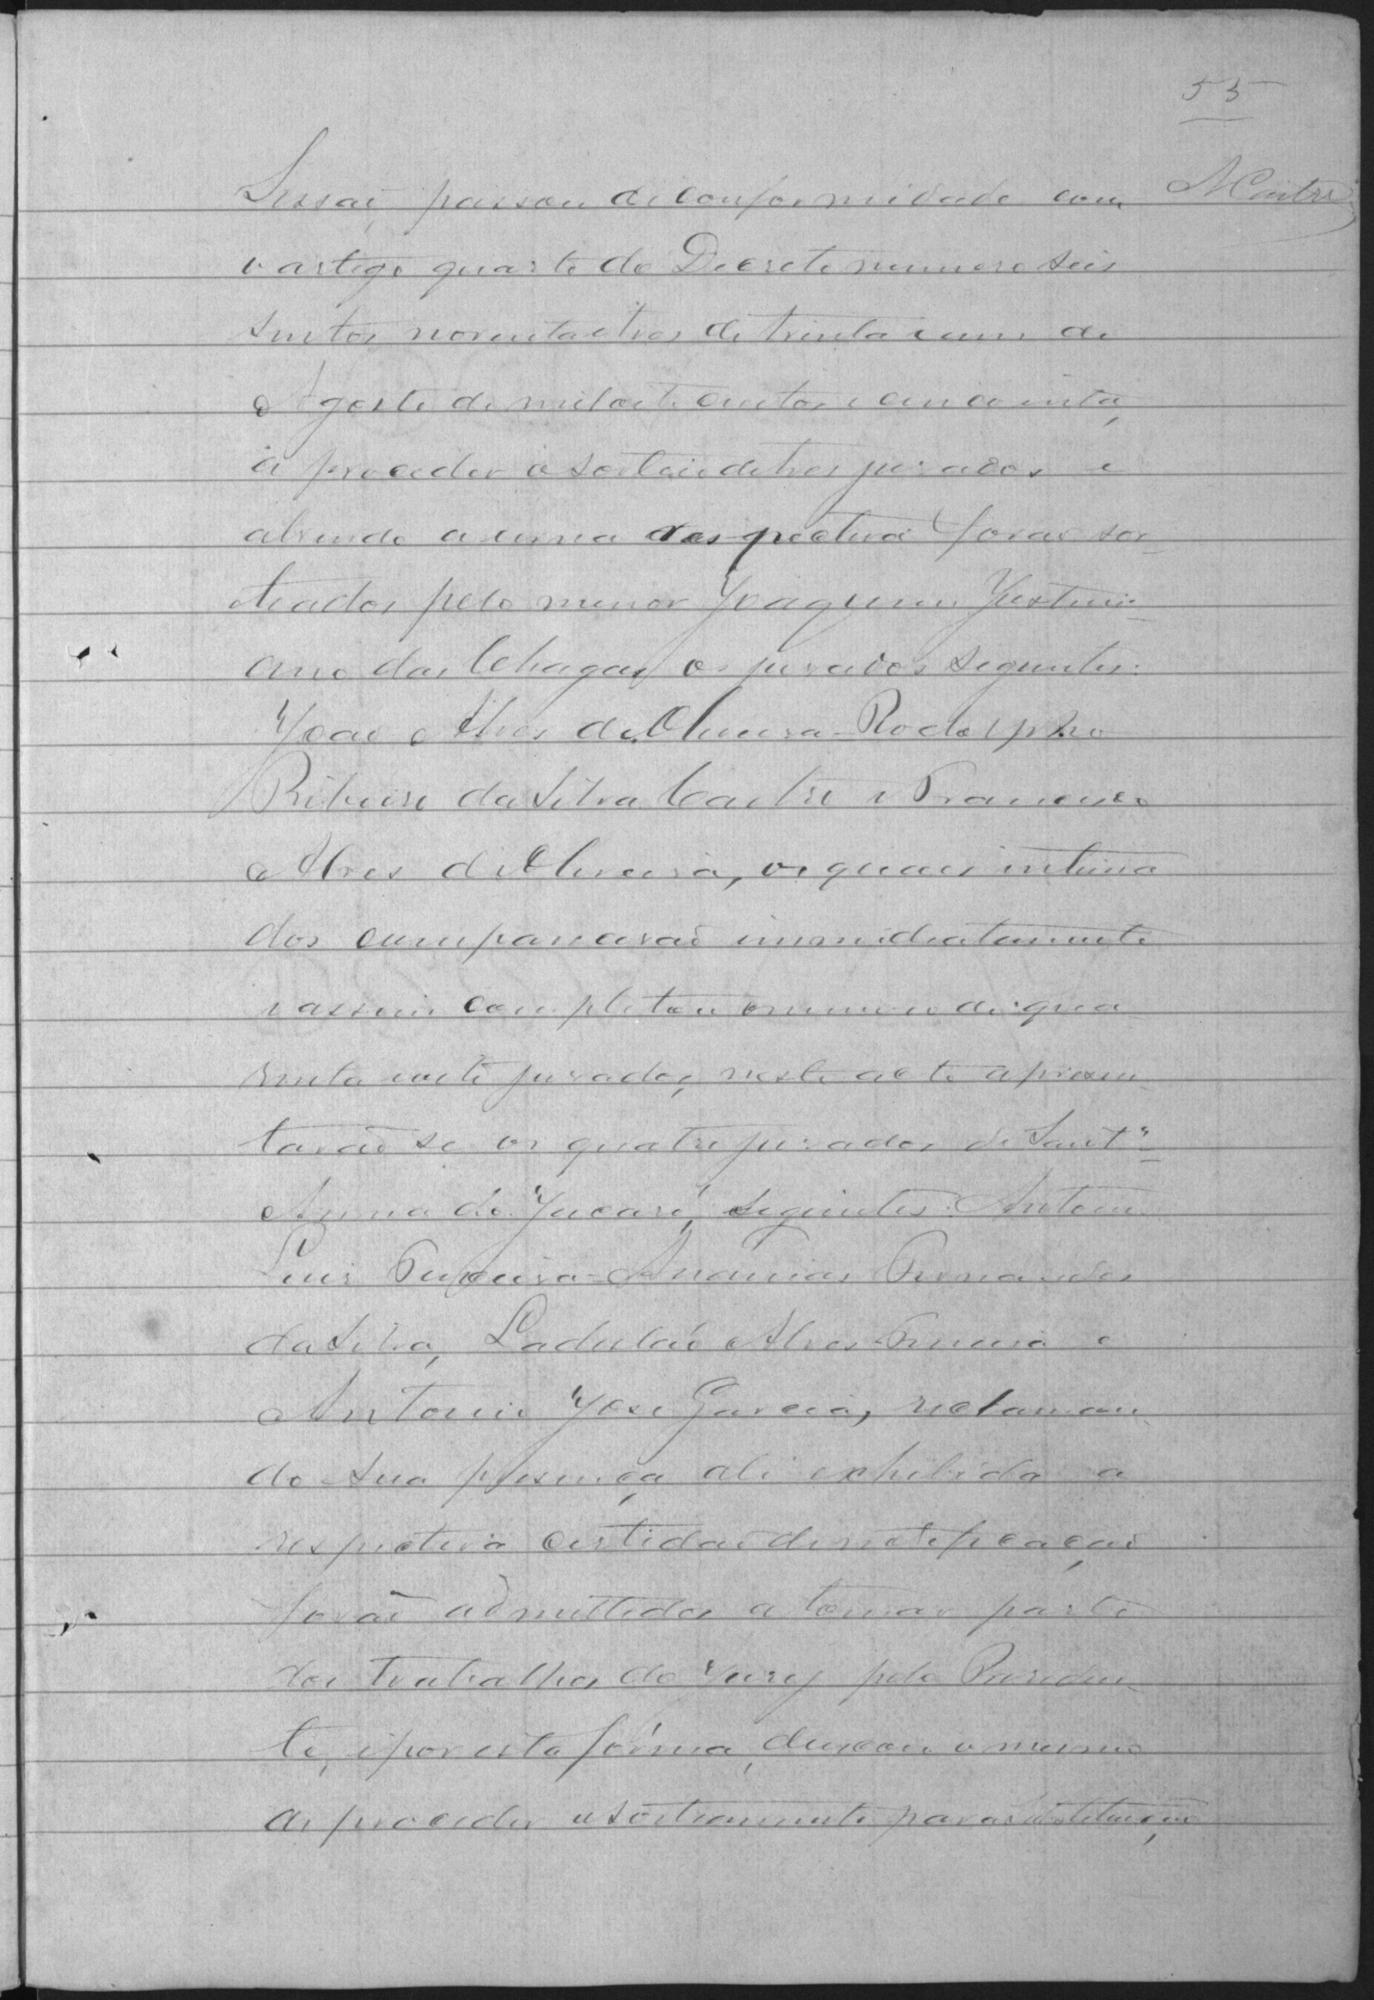 55
MCastro
Sessaõ, passou de conformidade com
o artigo quarto do Decreto numero seis
sentos noventa e tres de trinta e um de
Agosto de mil oito centos e cincoenta,
á proceder o sorteio de tres jurados e
abrindo a urna respectiva foraõ sor-
teados pelo menor Joaquim Justini-
ano das Chagas os jurados seguintes:
Joaõ Alves de Oliveira - Rodolpho
Ribeiro da Silva Castro e Francisco
Alves de Oliveira, os quaes intima
dos compareceraõ immidiatamente
e assim completou o numero de qua
renta e oito jurados, neste acto apresen-
taraõ se os quatro jurados de Sant'
Anna do Jucaré, seguintes: Antonio
Luis Teixeira - Ananias Fernandes
da Silva, Ladisláo Alves Ferreira e
Antonio José Garcia, reclaman-
do sua presença ali exhibida a
respectiva certidaõ de notificaçaõ
foraõ admittidos a tomar parte
dos trabalhos do Jury pelo Presiden-
te, e por esta fórma, deixou o mesmo
de proceder o sorteamento para substituiçaõ